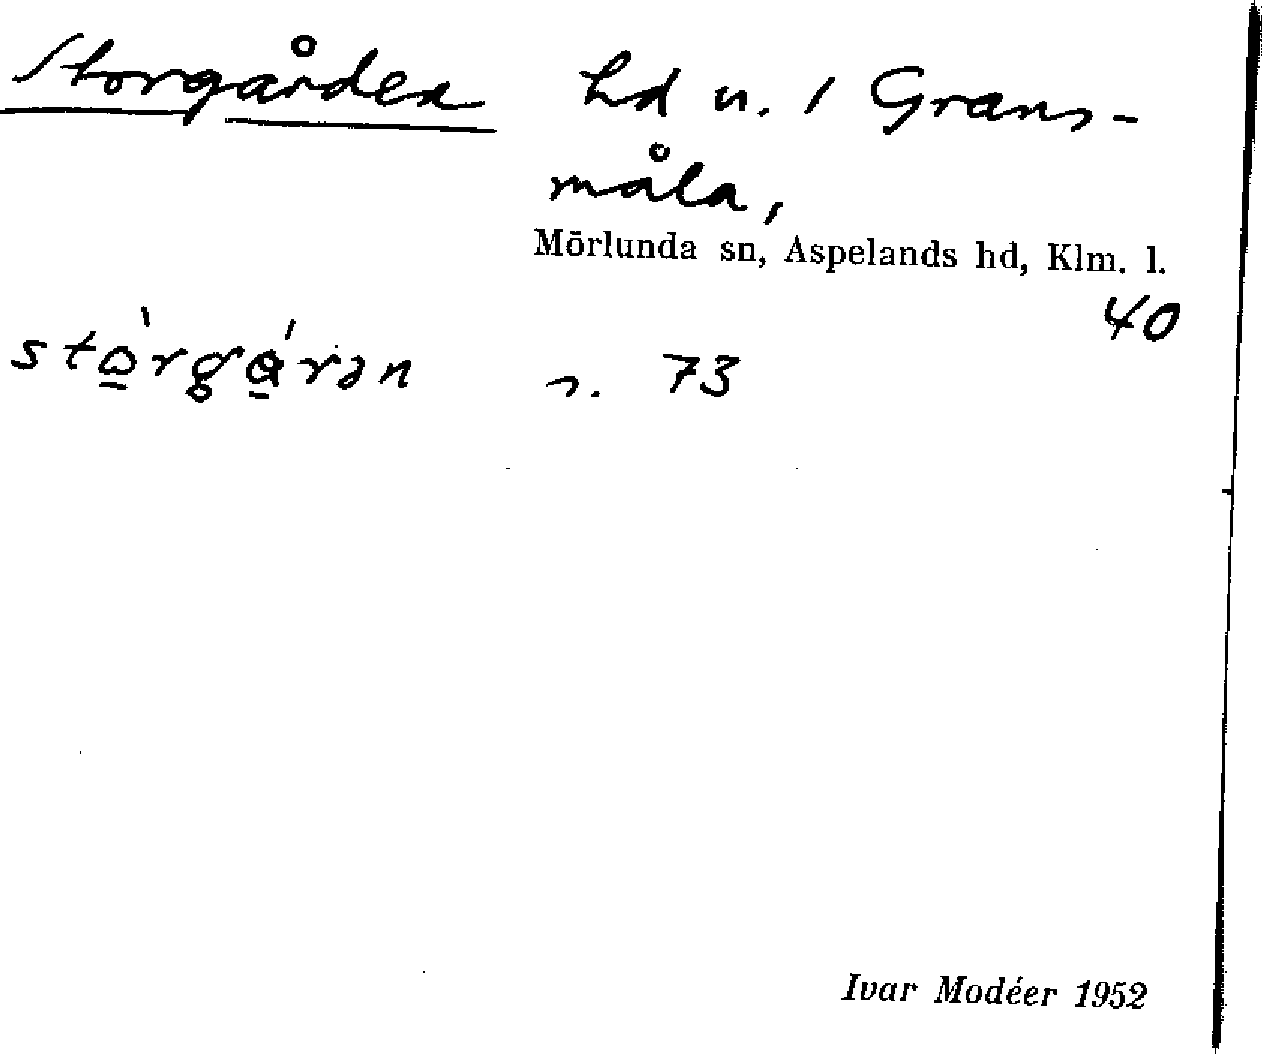 Storgården hd n. 1 Grans-
måla,
Mörlunda sn, Aspelands hd, Klm. l.
40
stò̱rgɑ̱́rən s. 73
Ivar Modéer 1952